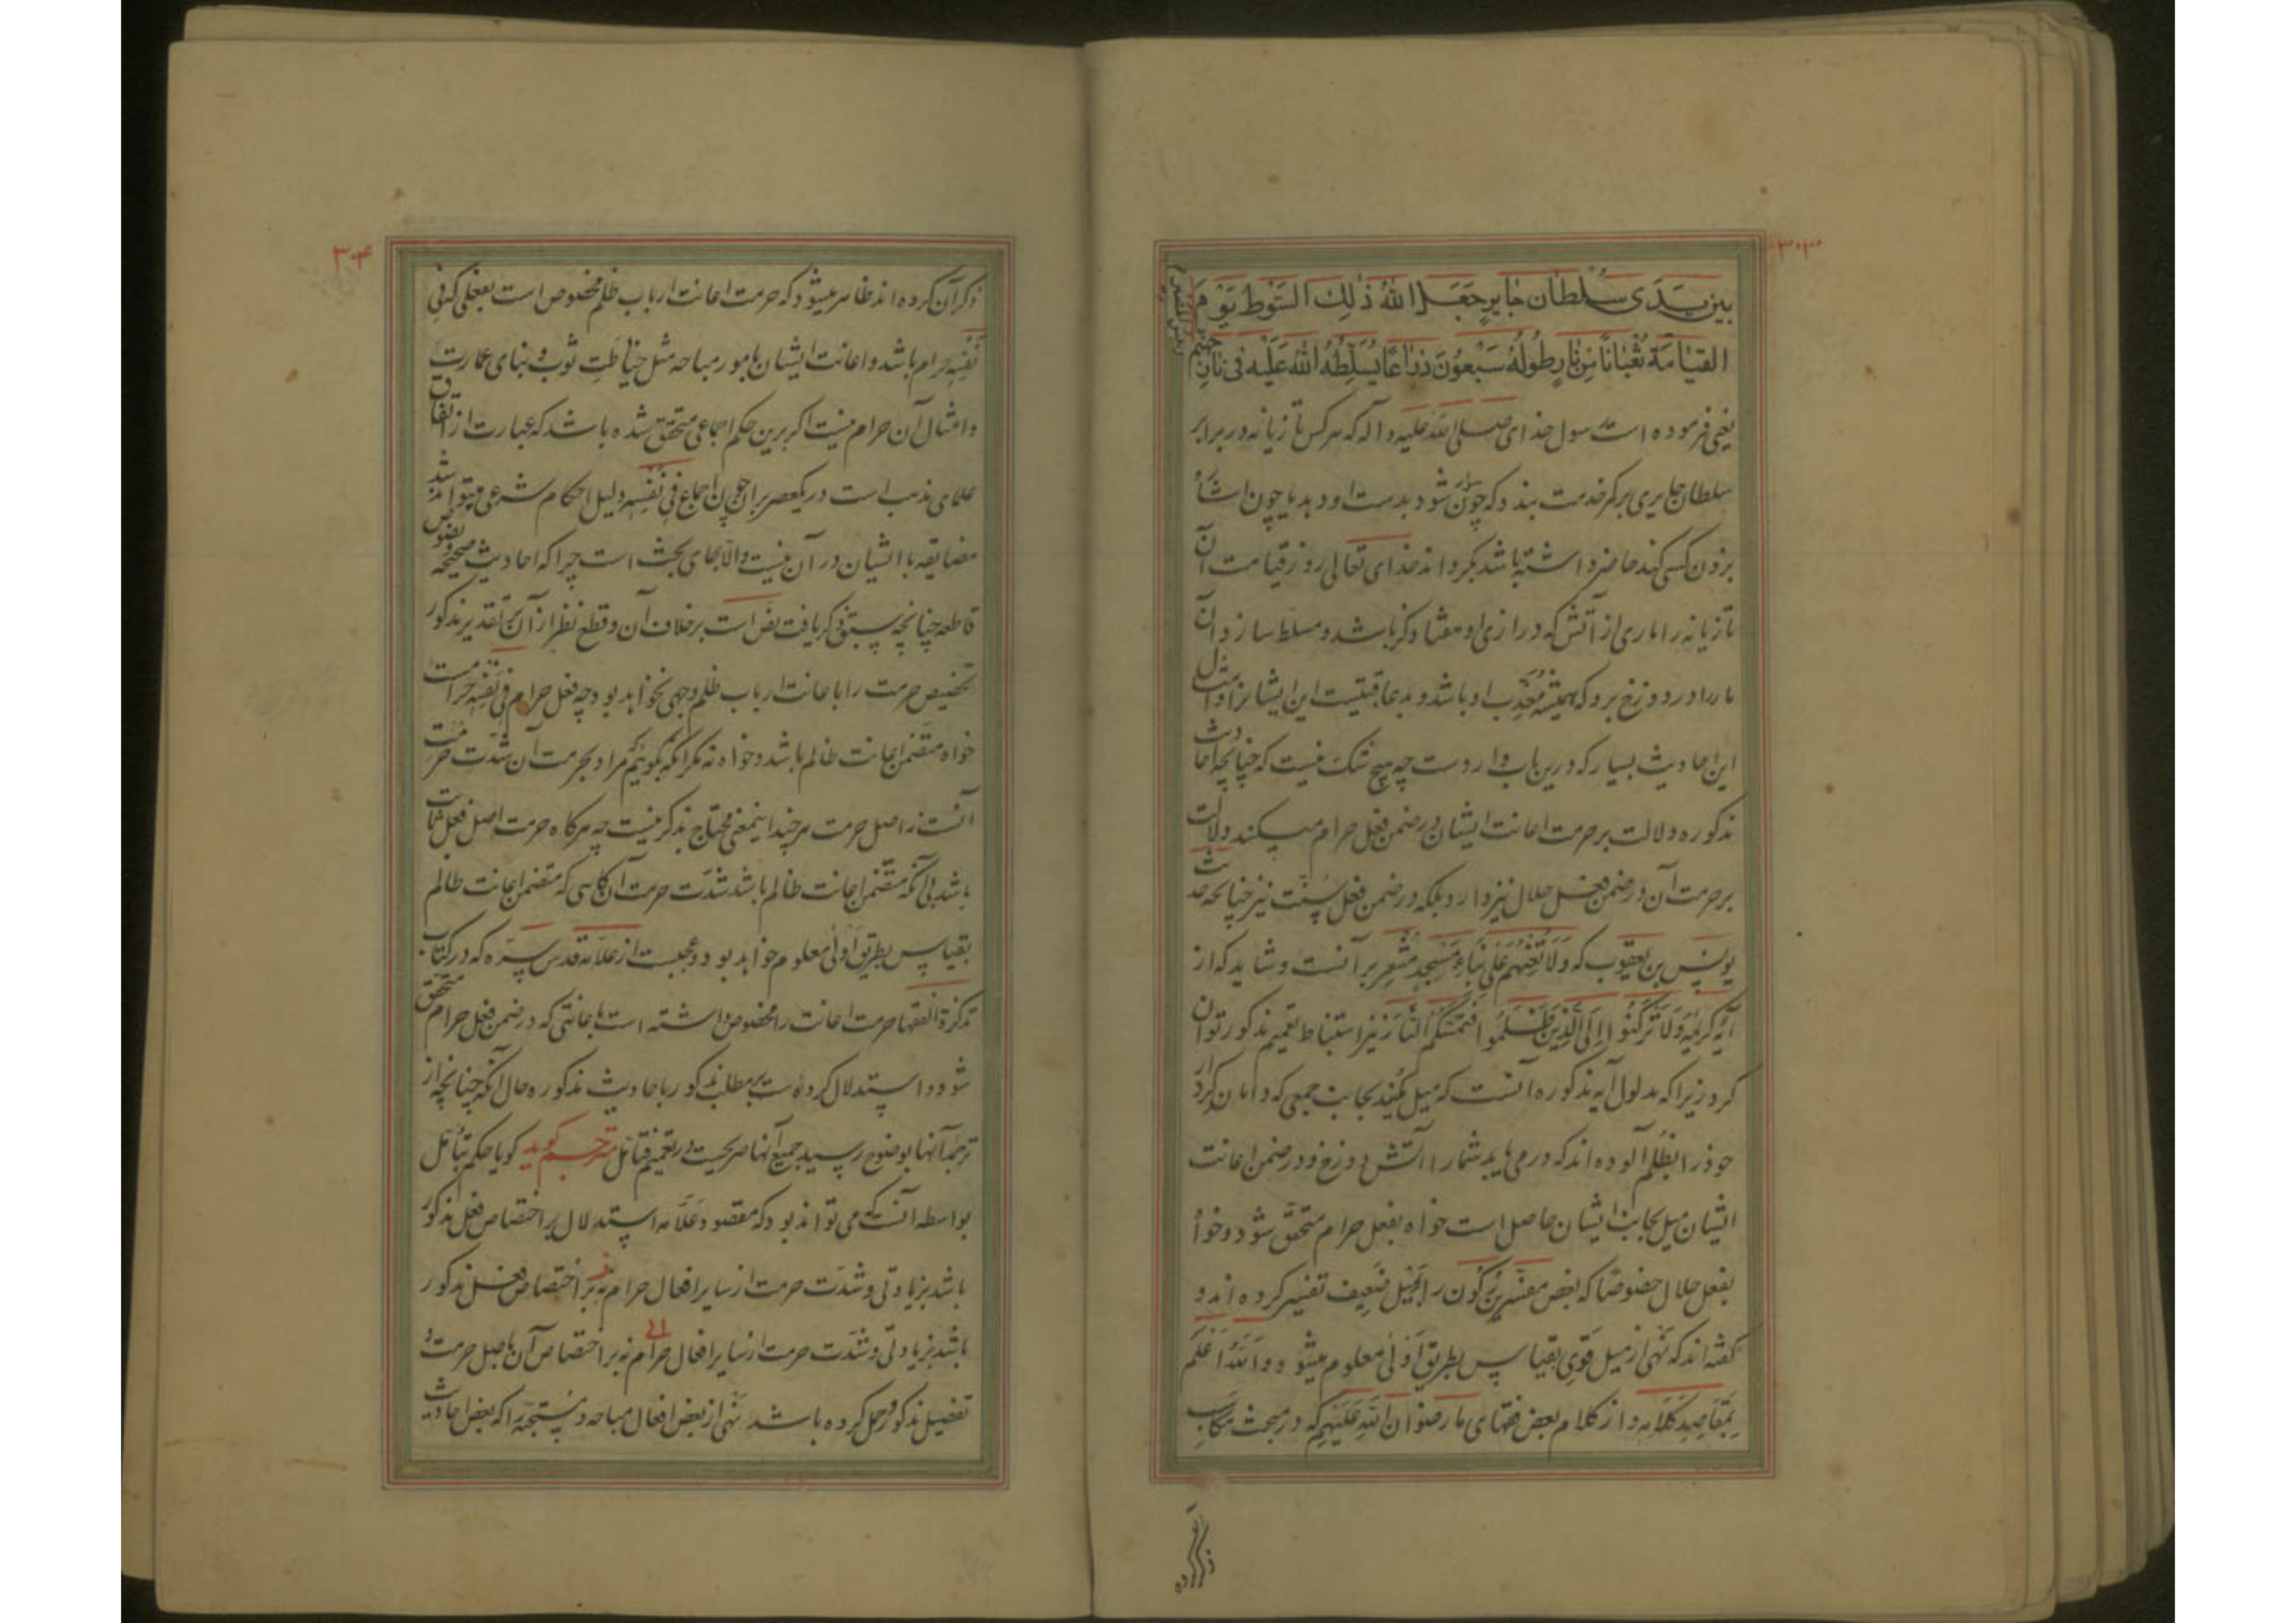 ۳۰۳
بین یدی سُلطان جایرٍ جَعَلَ اللهُ ذٰلِكَ السَّوط یَوْمَ
القیٰامَة ثُعْبٰاناً مِن نارٍ طُولُهُ سَبْعُونَ ذراعًا یُسَلِّطُهُ اللهُ عَلَیْه فی نارِ جهنم
یعنی فرموده است رسول خدای صلی الله علیه و آله که هر کس تازیانه در برابر
سلطان جایری بر کمر خدمت بندد که چون سوار شود بدست او دهد یا چون اشاه
بزدن کسی کند حاضر داشته باشد بکرداند خدای تعالی روز قیامت آن
تازیانه را ماری از آتش که درازی او هفتاد کز باشد و مسلط سازد آن
مار را در دوزخ برو که همیشه مُعَذِّب او باشد و بد عاقبتیست این ایشانرا و امثال
این احادیث بسیار که درین باب وارد ست چه هیچ شک نیست که چنانچه احادیث
مذکوره دلالت بر حرمت اعانت ایشان در ضمن فعل حرام میکند دلالت
بر حرمت آن در ضمن فعل حلال نیز دارد بلکه در ضمن فعل سُنّت نیز چنانچه حدیث
یونس بن یعقوب که وَلَا تُعِنْهُمْ عَلیٰ بِنٰاءِ مَسْجِدٍ مُشْعِر بر آنست و شاید که از
آیه کریمه وَلَا تَرْكَنُوا اِلَی الَّذِینَ ظَلَمُوا فَتَمَسَّكُمُ النَّار نیز استنباط تعمیم مذکور توان
کرد زیرا که مدلول آیه مذکوره آنست که میل مکنید بجانب جمعی که دامان کردار
خود را بظُلم آلوده اند که در می یابد شما را آتش دوزخ و در ضمن اعانت
ایشان میل بجانب ایشان حاصل است خواه بفعل حرام متحقّق شود و خواه
بفعل حلال خصوصًا که بعض مفسّرین رُکُون را بمَیْل ضَعِیف تفسیر کرده اند و
کفته اند که نَهْی از میل قَوِی بقیاس بطریق اَوْلیٰ معلوم میشود وَ اللهُ اَعْلَم
بِمَقٰاصِدِ کَلامِه و از کلام بعض فقهای ما رضوان الله عَلَیْهِم که در مبحث مکاسب
ذکر کرده
۳۰۴
ذکر آن کرده اند ظاهر میشود که حرمت اعانت ارباب ظلم مخصوص است بفعلی که فی
نَفْسِهِ حرام باشد و اعانت ایشان بامور مباحه مثل خیاطَتِ ثوب و بنای عمارت
و امثال آن حرام نیست اکر برین حکم اجماعی متحقق شده باشد که عبارت از اتفاق
علمای مذهب است در یکعصر بران چون اجماع فی نَفْسِه دلیل احکام شرعی میتواند شد
مضایقه با ایشان در آن نیست و الّا جای بحث است چرا که احادیث صحیحه و نصوص
قاطعه چنانچه سبق ذکر یافت نص است بر خلاف آن و قطع نظر از آن بر تقدیر مذکور
تخصیص حرمت را با عانت ارباب ظلم وجهی نخواهد بود چه فعل حرام فی نَفْسِهِ حرامست
خواه متضمن اعانت ظالم باشد و خواه نه مکر آنکه بکوئیم که مراد بحرمت آن شدّت حرمت
آنست نه اصل حرمت هر چند اینمعنی محتاج بذکر نیست چه هر کاه حرمت اصل فعل ثابت
باشد بی آنکه متضمن اعانت ظالم باشد شدّت حرمت آن کاهی که متضمن اعانت ظالم
بقیاس بطریق اَولیٰ معلوم خواهد بود و عجبست از علّامه قدس سِرّه که در کتاب
تذکرة الفقها حرمت اعانت را مخصوص داشته است باعانتی که در ضمن فعل حرام متحقق
شود و استدلال کرده است بر مطلب مذکور باحادیث مذکوره حال آنکه چنانچه از
ترجمه آنها بوضوح رسید جمیع آنها صریحست در تعمیم فتامّل مترجم کوید کویا حکم بتأمّل
بواسطه آنست که می تواند بود که مقصود عَلّامه استدلال بر اختصاص فعل مذکور
باشد بزیادتی و شدّت حرمت از سایر افعال حرام نه بر اختصاص فعل مذکور
باشد بزیادتی و شدّت حرمت از سایر افعال حرام نه بر اختصاص آن باصل حرمت و
تفصیل مذکور حمل کرده باشد نَهْی از بعض افعال مباحه و مستحبّه را که بعض احادیث